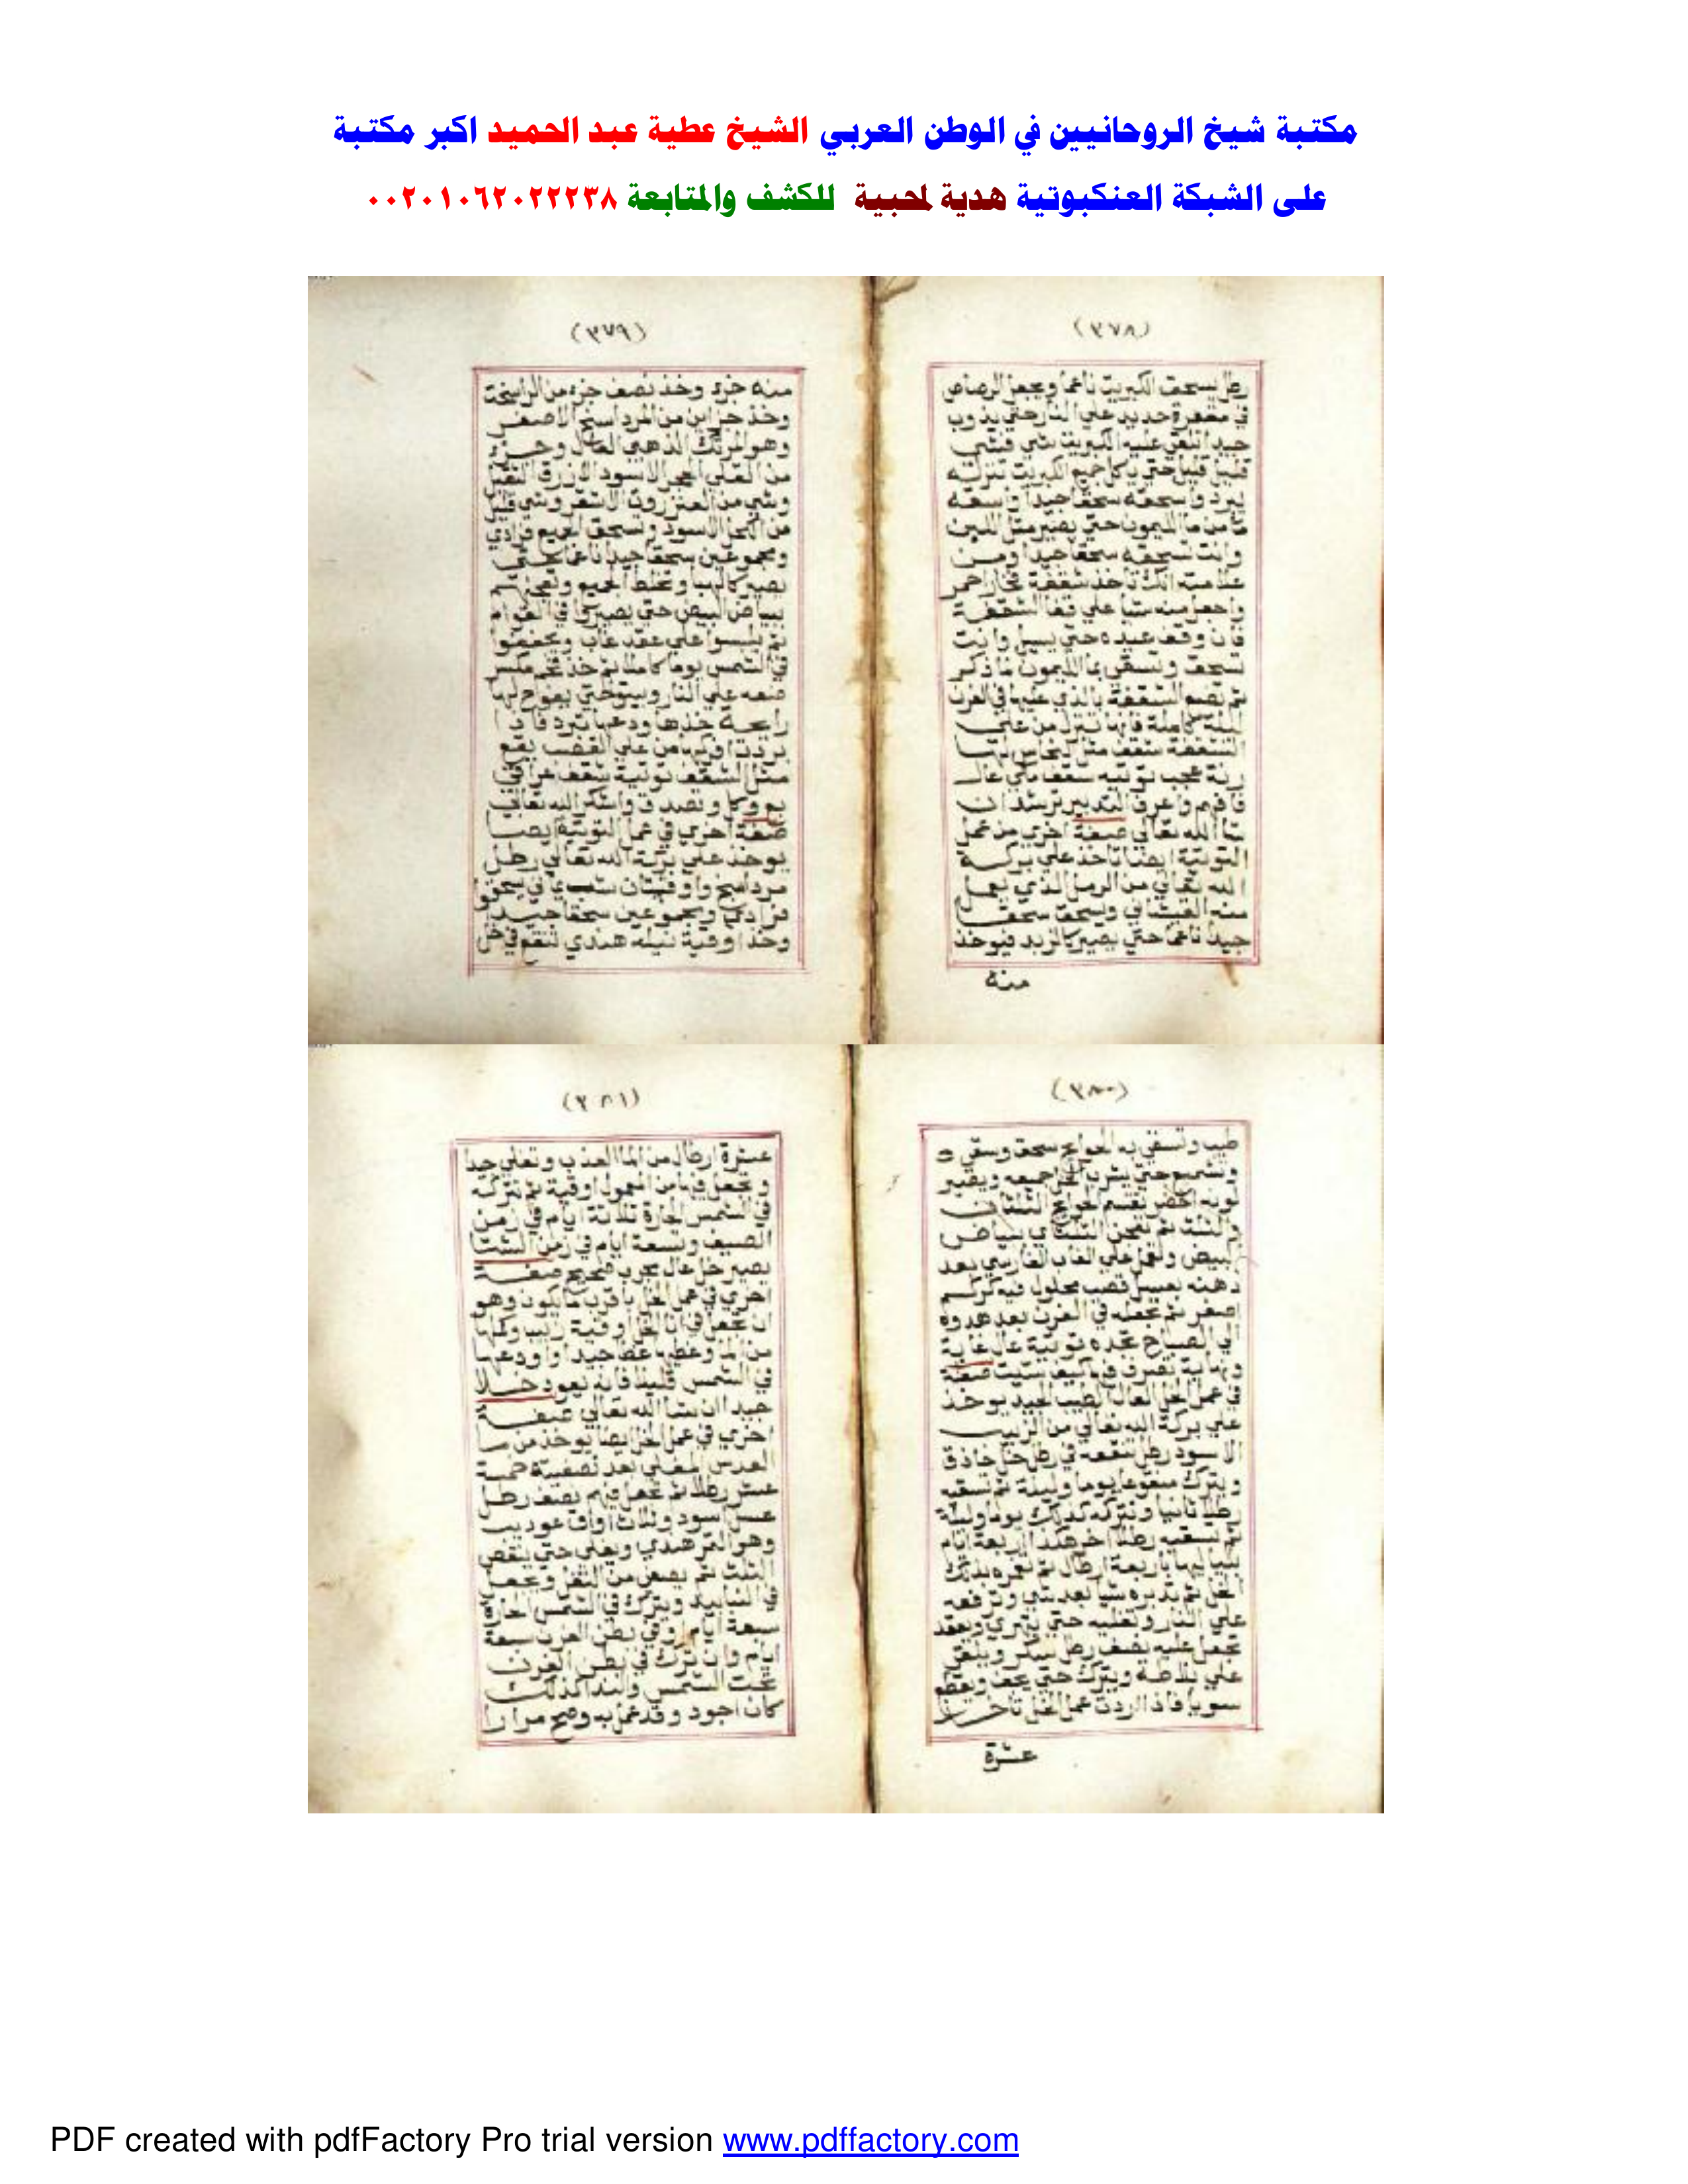 مكتبة شيخ الروحانيين في الوطن العربي الشيخ عطية عبد الحميد اكبر مكتبة
على الشبكة العنكبوتية هدية لمحبية للكشف والمتابعة ٠٠٢٠١٠٦٢٠٢٢٢٣٨
(٣٧٨)
رطل يسحق الكبريت ناعما ويجعل الرصاص
في مغفرة حديد علي النار حتي يذوب
جيدا القي عليه الكبريت شي فشي
قليل قليل حتي ياكل جميع الكبريت تنزله
يبرد واسحقه سحقا جيدا واسقه
من ما الليمون حتي يصير مثل اللبن
وانت تسحقه سحقا جيدا ومن
علامته انك تاخذ شقفة فخار احمر
واجعل منه شيا علي قفا الشقفة
فان وقف عليه حتي يسيل وانت
تسحق وتسقي بما الليمون ما ذكر
ثم تضع الشقفة بالذي عليها في الفرن
ليلة كاملة فانها تنزل من علي
الشقفة شقف مثل النحاس لها
رنة عجب توتيه شقف عال
فافهم واعرف التدبير ترشد ان
شا الله تعالي صفة اخري من عمل
التوتية ايضا تاخذ علي بركة
الله تعالي من الرمل الذي يعمل
منه القيشاني ويسحق سحقا
جيدا ناعما حتي يصير كالزبد فيوخذ
منه
(٣٧٩)
منه جزء وخذ نصف جزء من الراسخت
وخذ جزاين من المرداسنج الاصفر
وهو المرتك الذهبي العال وجزء
من القلي الحجر الاسود الازرق الثقيل
وشي من العنزروت الاشقر وشي قليل
من الكحل الاسود وتسحق الجميع فرادي
ومجموعين سحقا جيدا ناعما حتي
يصير كالهبا وتخلط الجميع وتعجنهم
ببياض البيض حتي يصير في القوام
ثم يلبسوا علي عقد غاب ويجففوا
في الشمس يوما كاملا ثم خذ فحم
ضعه علي النار حتي يفوح لها
رايحة خذها ودعها تبرد فاذا
بردت افركها من علي القصب يقع
مثل الشقف توتية شقف عراقي
بع وكل وتصدق واشكر الله تعالي
صفة اخري في عمل التوتية ايضا
يوخذ علي بركة الله تعالي رطل
مرداسنج واوقيتان شب يماني يسحقوا
فرادي ومجموعين سحقا جيدا
وخذ اوقية نيلة هندي تنقع في خل
(٣٨٠)
طيب وتسقي به الحوايج سحق وسقي
وتشميع حتي يشرب الخل جميعه ويصير
لونه اخضر تقسم الحوايج الثلثان
والثلث ثم تعجن الثلثاي ببياض
البيض وتعمل علي الغاب الفارسي بعد
دهنه بعسل قصب محلول فيه كركم
اصفر ثم تجعله في الفرن بعد هدوه
الي الصباح تجده توتية عال غاية
ونهاية تصرف فيه كيف شيت صفة
في عمل الخل العال الطيب الجيد يوخذ
علي بركة الله تعالي من الزبيب
الاسود رطل تنقعه في رطل خل حاذق
ويترك منقوعا يوما وليلة ثم تسقيه
رطلا ثانيا وتتركه كذلك يوم وليلة
ثم تسقيه رطلا اخر هكذا اربعة ايام
بلياليها باربعة ارطال ثم
الخل ثم شيا بعد شي وترفعه
علي النار وتغليه حتي يتهري وينعقد
تجعل عليه نصف رطل سكر ويلقي
علي بلاطة ويترك حتي يجف ويقطع
سويا فاذا اردت عمل الخل تاخذ
عشرة
(٣٨١)
عشرة ارطال من الما العذب وتغلي جيدا
وتجعل فيها من المعمول اوقية ثم تتركه
في الشمس الحارة ثلاثة ايام في زمن
الصيف وتسعة ايام في زمن الشتا
يصير خل عال مجرب صحيح صفة
اخري في عمل الخل باقرب ما يكون وهو
ان تجعل في انا الخل اوقية زبيب
من الما وغطيه غطا جيدا واودعها
في الشمس قليلا فانه يعود خلا
جيد ان شا الله تعالي صفة
اخري في عمل الخل ايضا يوخذ من ما
العدس المغلي بعد تصفيته خمسة
عشر رطلا ثم تجعل فيهم نصف رطل
عسل اسود وثلاث اواق عود يب
وهو التمر هندي ويغلي حتي ينقص
الثلث ثم يصفي من الثفل ويجعل
في القنابيد ويترك في الشمس الحارة
سبعة ايام وفي بطن الفرن سبعة
ايام وان ترك في بطن الفرن
تحت الشمس والندا كذلك
كان اجود وقد عمل به وصح مرارا
PDF created with pdfFactory Pro trial version www.pdffactory.com